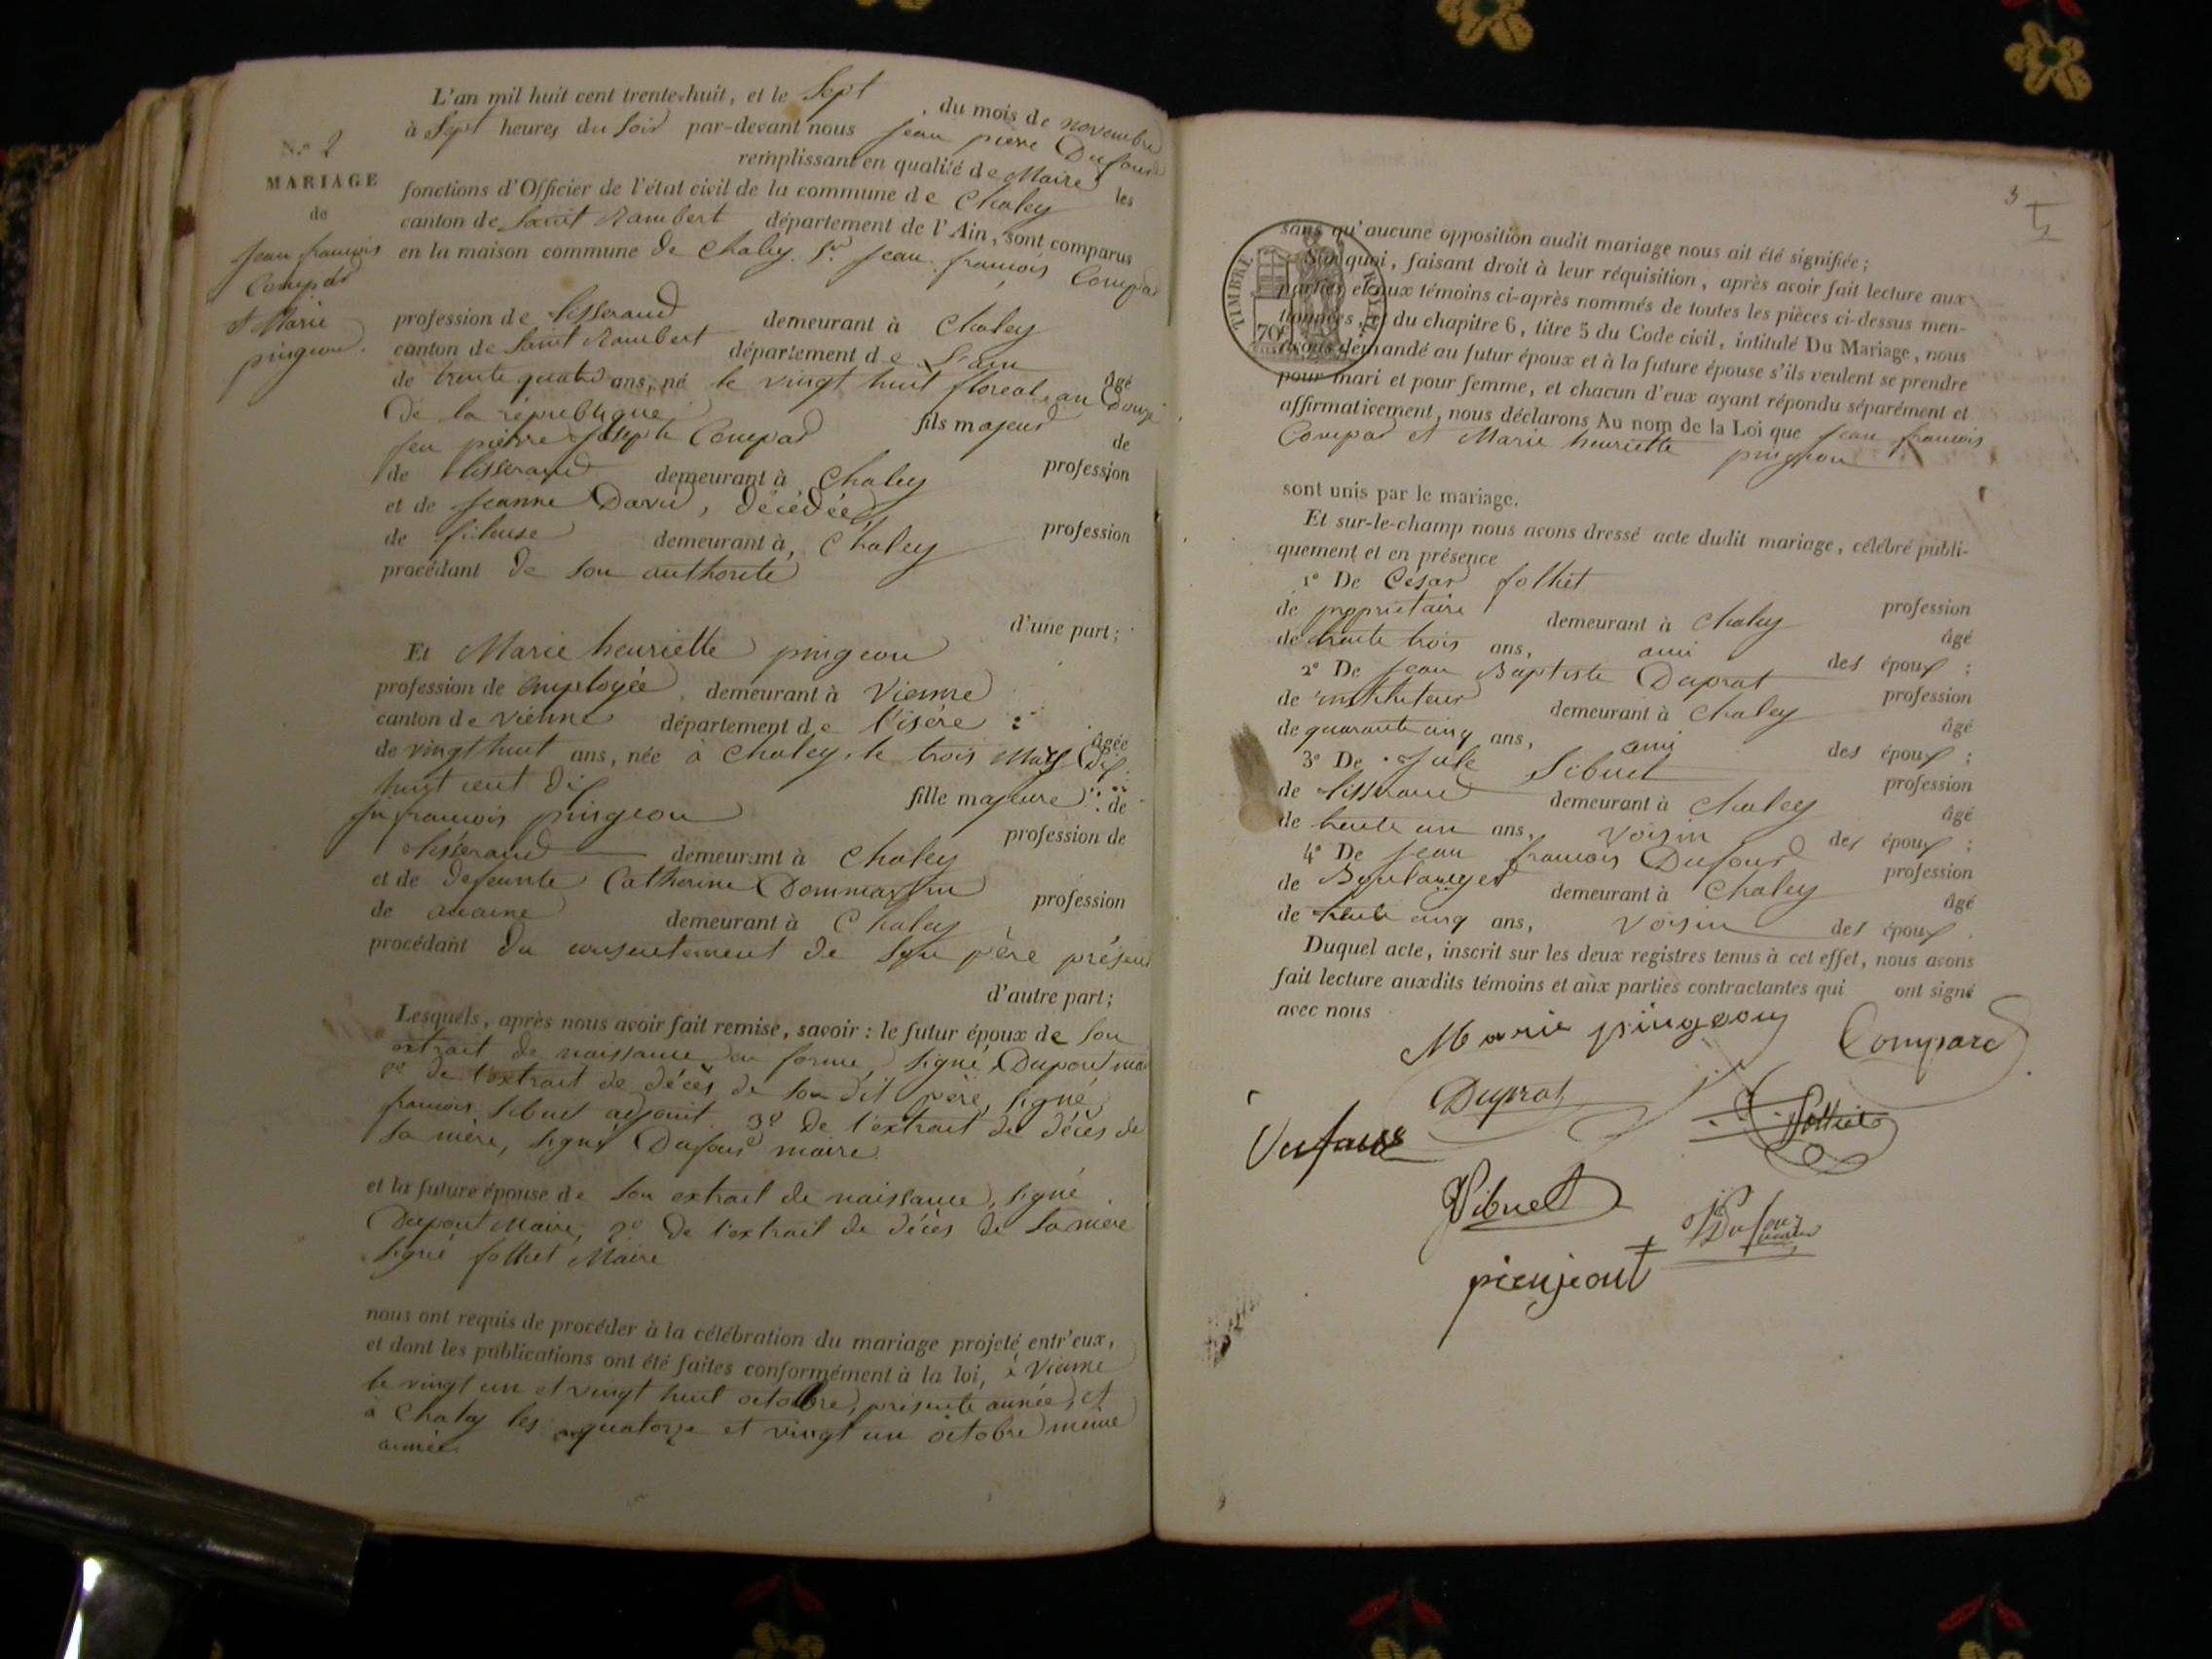 L'an mil huit cent trente-huit, et le Sept , du mois de novembre
à Sept heures du Soir par-devant nous jean pierre Dufour
remplissant en qualité de Maire les
fonctions d'Officier de l'état civil de la commune de Chaley
canton de Saint Rambert département de l'Ain, sont comparus
en la maison commune de Chaley. 1.º jean françois Compar
N.º 2
MARIAGE
de
jean françois
Compar
et Marie
pingeon.
profession de tisserand demeurant à Chaley
canton de Saint Rambert département de L'ain âgé
de trente quatre ans, né le vingt huit floreal, an Douze
De la république fils majeur de
feu pierre joseph Compar profession
de tisserand demeurant à Chaley
et de jeanne David, décédée, profession
de fileuse demeurant à Chaley
procédant de son authorité
d'une part;
Et Marie henriette pingeon
profession de Employée demeurant à Vienne
canton de Vienne département de l'isère âgée
de vingt huit ans, née à Chaley, le trois Mars Dix
huit cent dix fille majeure de
françois pingeon profession de
tisserand demeurant à Chaley
et de defeunte Catherine Dommartin profession
de aucune demeurant à Chaley
procédant du consentement de Son père présent
d'autre part;
Lesquels, après nous avoir fait remise, savoir : le futur époux de Son
extrait de naissance en forme, signé Dupont maire
2º de l'extrait de décès de son dit père, signé
françois Sibuet adjoint. 3º De l'extrait de décès de
sa mère, signé Dufour maire
et la future épouse de son extrait de naissance, signé
Dupont Maire, 2º De l'extrait de décès de Sa mère
signé folliet Maire
nous ont requis de procéder à la célébration du mariage projeté entr'eux,
et dont les publications ont été faites conformément à la loi, à Vienne
le vingt un et vingt huit octobre, présente année, et
à Chaley les quatorze et vingt un octobre même
année
3
sans qu'aucune opposition audit mariage nous ait été signifiée;
Sur quoi, faisant droit à leur réquisition, après avoir fait lecture aux
parties et aux témoins ci-après nommés de toutes les pièces ci-dessus men-
tionnées, et du chapitre 6, titre 5 du Code civil, intitulé Du Mariage, nous
avons demandé au futur époux et à la future épouse s'ils veulent se prendre
pour mari et pour femme, et chacun d'eux ayant répondu séparément et
affirmativement, nous déclarons Au nom de la Loi que jean françois
Compar et Marie henriette pingeon
TIMBRE ROYAL
70c
sont unis par le mariage.
Et sur-le-champ nous avons dressé acte dudit mariage, célébré publi-
quement et en présence
1º De César folliet profession
de propriétaire demeurant à Chaley âgé
de trente trois ans, ami des époux ;
2º De jean Baptiste Duprat profession
de instituteur demeurant à Chaley âgé
de quarante cinq ans, ami des époux ;
3º De jule Sibuet profession
de tisserand demeurant à Chaley âgé
de trente un ans, voisin des époux ;
4º De jean françois Dufour profession
de Boulanger demeurant à Chaley âgé
de trente cinq ans, voisin des époux .
Duquel acte, inscrit sur les deux registres tenus à cet effet, nous avons
fait lecture auxdits témoins et aux parties contractantes qui ont signé
avec nous
Marie pingeon Compard
Duprat folliet
Dufour
Sibuet Dufour
pienjeont